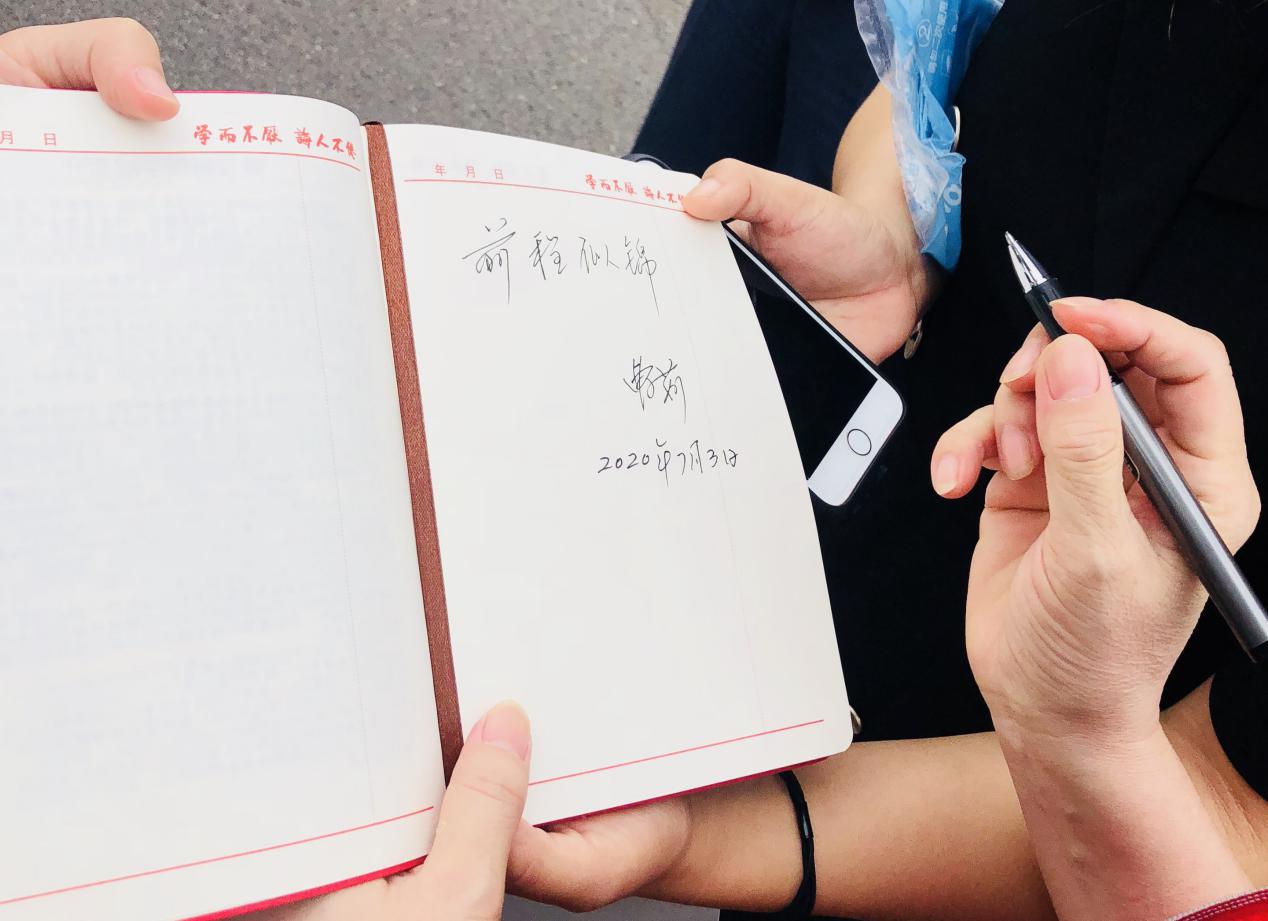 月 日 学而不厌 诲人不倦
年 月 日 学而不厌 诲人不
前程似锦
2020年7月3日